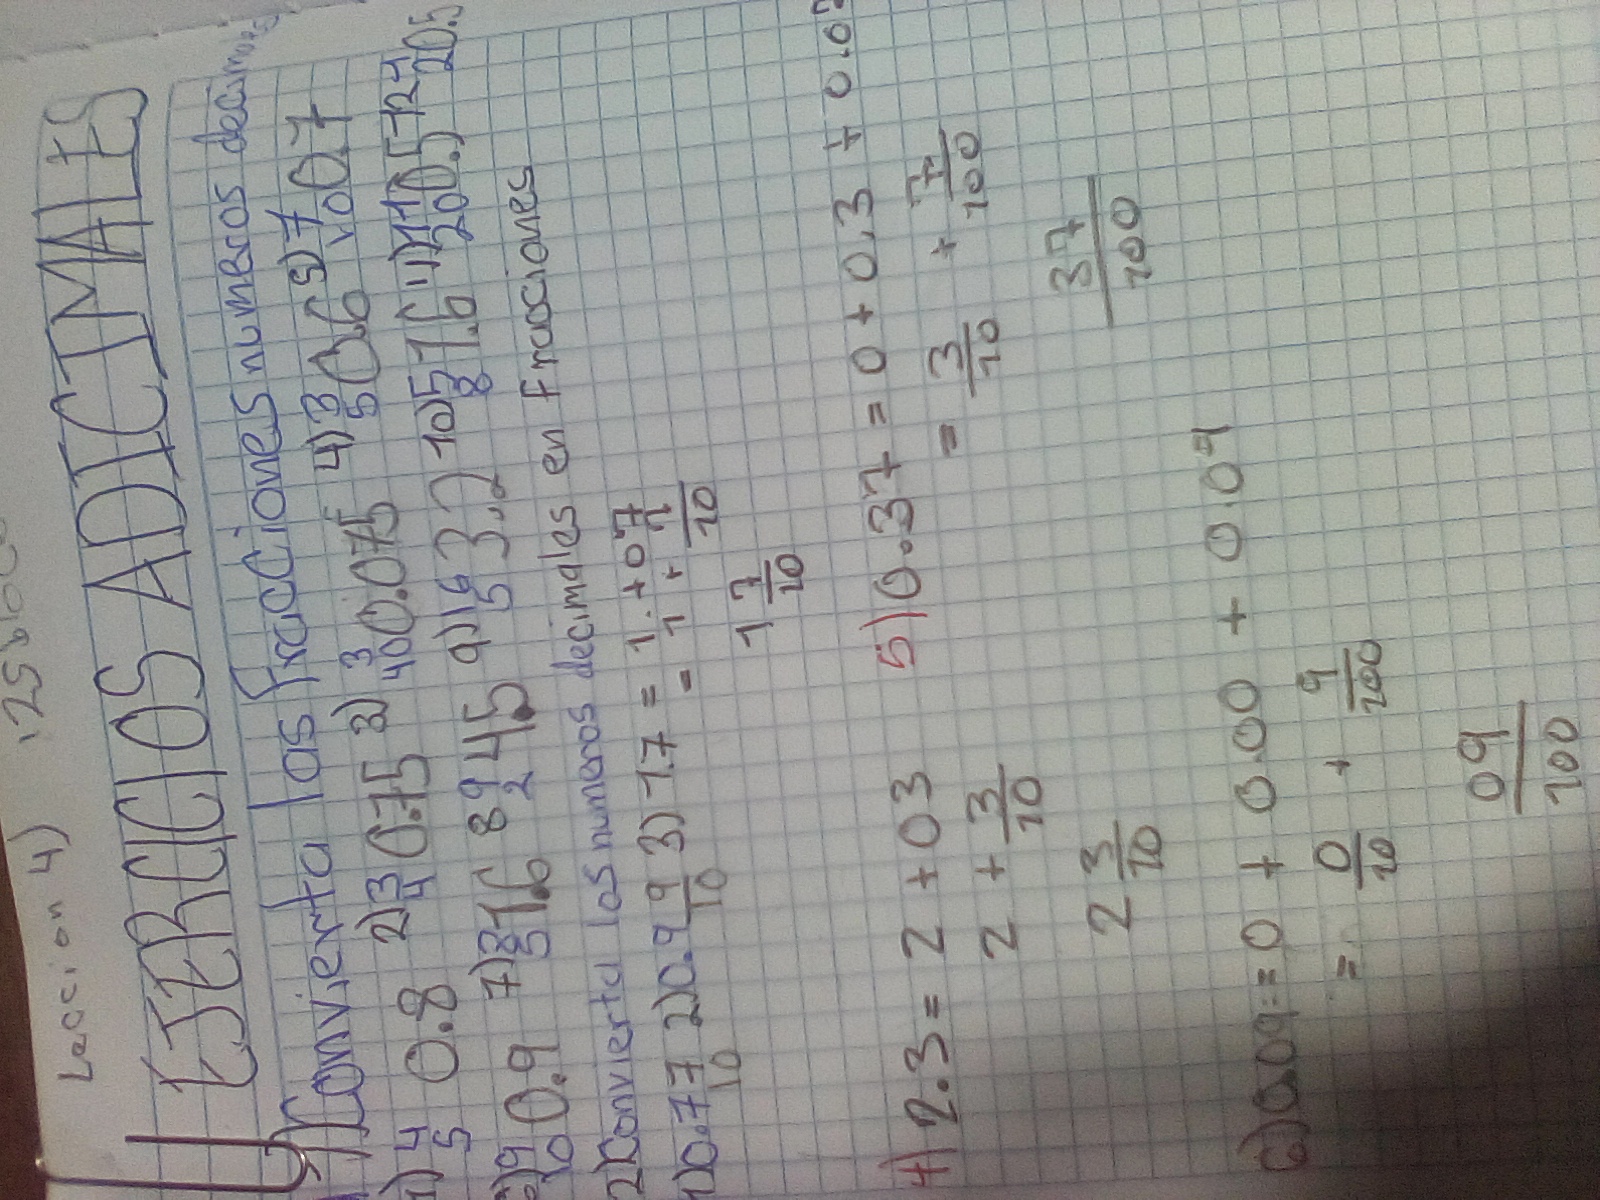 Leccion 4)
EJERCICIOS ADICIMALES
1) Convierta las fracciones numeros decimales
1) 4/5 0.8 2) 3/4 0.75 3) 3/40 0.075 4) 3/5 0.6 5) 7/10 0.7
9/10 0.9 7) 8/5 1.6 8 9/2 4.5 9) 16/5 3.2 10) 5/8 11)
2) Convierta los numeros decimales en fracciones
1) 0.7 7/10 2) 0.9 9/10 3) 1.7 = 1. + 07
= 1 + 7/10
1 7/10
4) 2.3 = 2 + 03
2 + 3/10
2 3/10
5) 0.37 = 0 + 0.3 + 0.0
= 3/10 + 7/100
37/100
6) 0.09 = 0 + 0.00 + 0.09
= 0/10 + 9/100
09/100